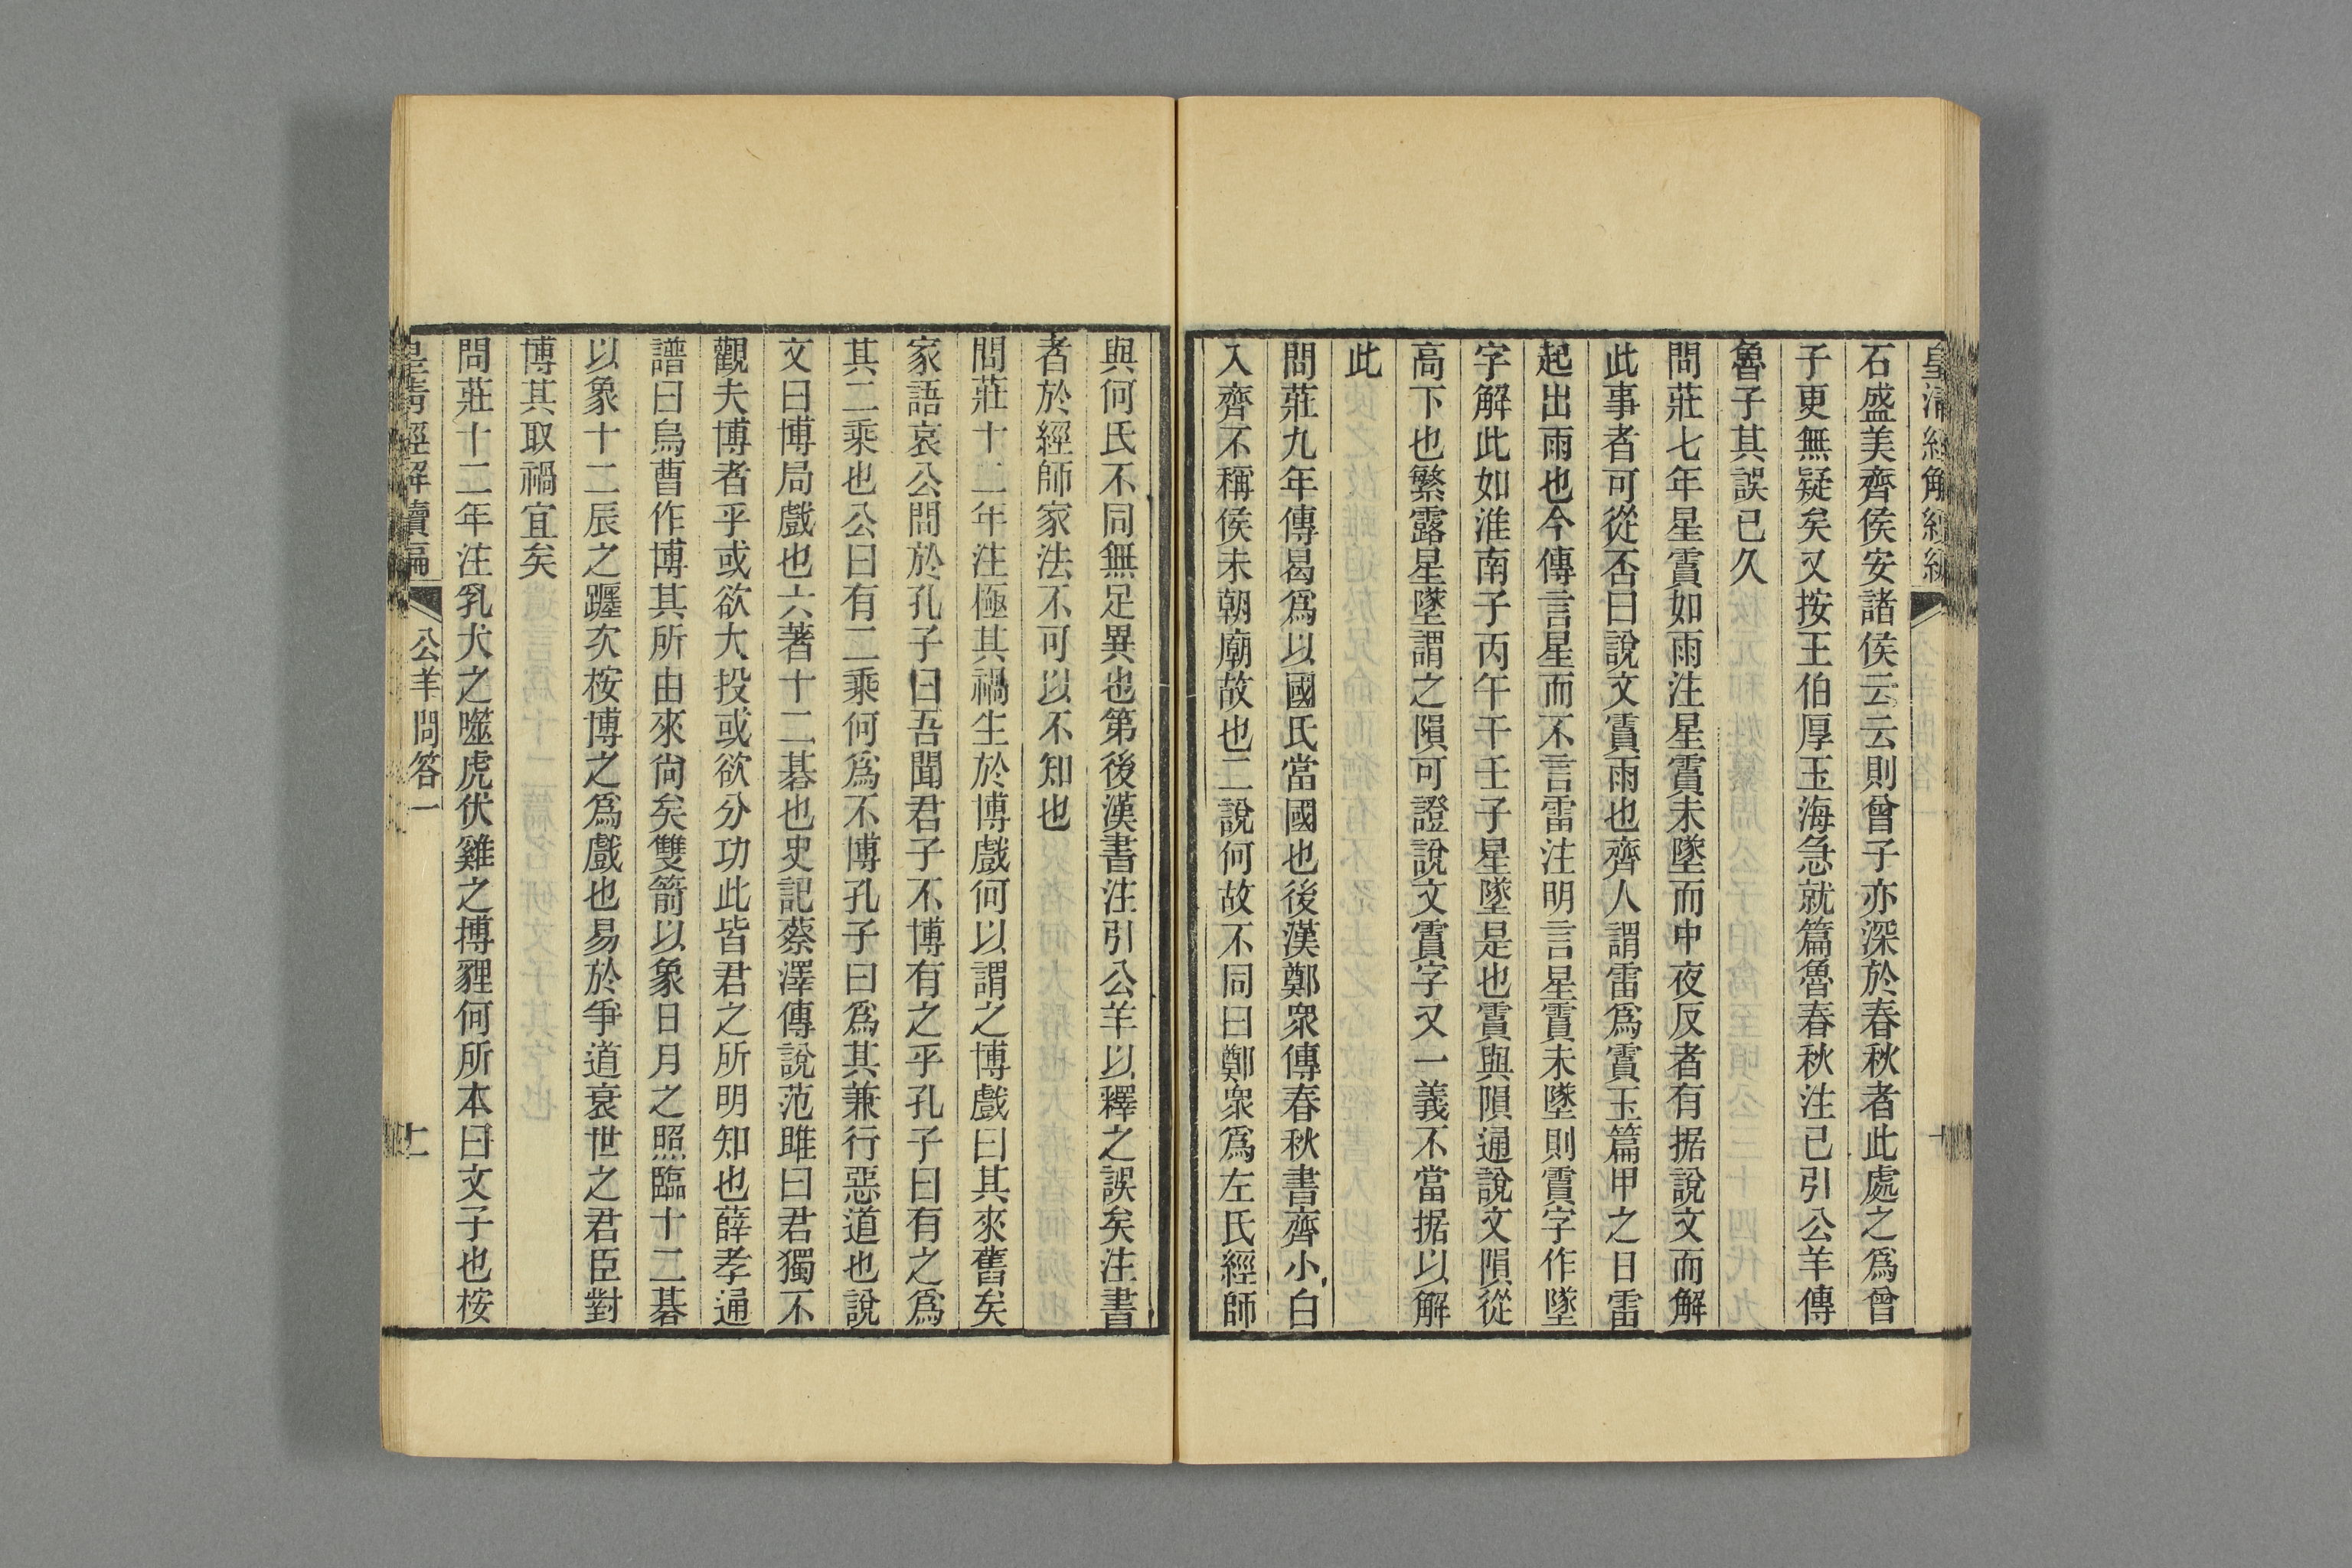 皇清經解續編
石盛美齊侯安諸侯云云則曾子亦深於春秋者此處之爲曾
子更無疑矣又按王伯厚玉海急就篇魯春秋注已引公羊傳
魯子其誤已久
問莊七年星霣如雨注星霣未墜而中夜反者有据說文而解
此事者可從否曰說文霣雨也齊人謂雷爲霣玉篇甲之日雷
起出雨也今傳言星而不言雷注明言星霣未墜則霣字作墜
字解此如淮南子丙午干壬子星墜是也霣與隕通說文隕從
高下也繁露星墜謂之隕可證說文霣字又一義不當据以解
此
問莊九年傳曷爲以國氏當國也後漢鄭眾傳春秋書齊小白
入齊不稱侯未朝廟故也二說何故不同曰鄭眾爲左氏經師
與何氏不同無足異也第後漢書注引公羊以釋之誤矣注書
者於經師家法不可以不知也
問莊十二年注極其禍生於博戲何以謂之博戲曰其來舊矣
家語哀公問於孔子曰吾聞君子不博有之乎孔子曰有之爲
其二乘也公曰有二乘何爲不博孔子曰爲其兼行惡道也說
文曰博局戲也六著十二棊也史記蔡澤傳說范雎曰君獨不
觀夫博者乎或欲大投或欲分功此皆君之所明知也薛孝通
譜曰烏曹作博其所由來尙矣雙箭以象日月之照臨十二棊
以象十二辰之躔次桉博之爲戲也易於爭道衰世之君臣對
博其取禍宜矣
問莊十二年注乳犬之噬虎伏雞之搏貍何所本曰文子也桉
皇清經解續編 公羊問答一 十一